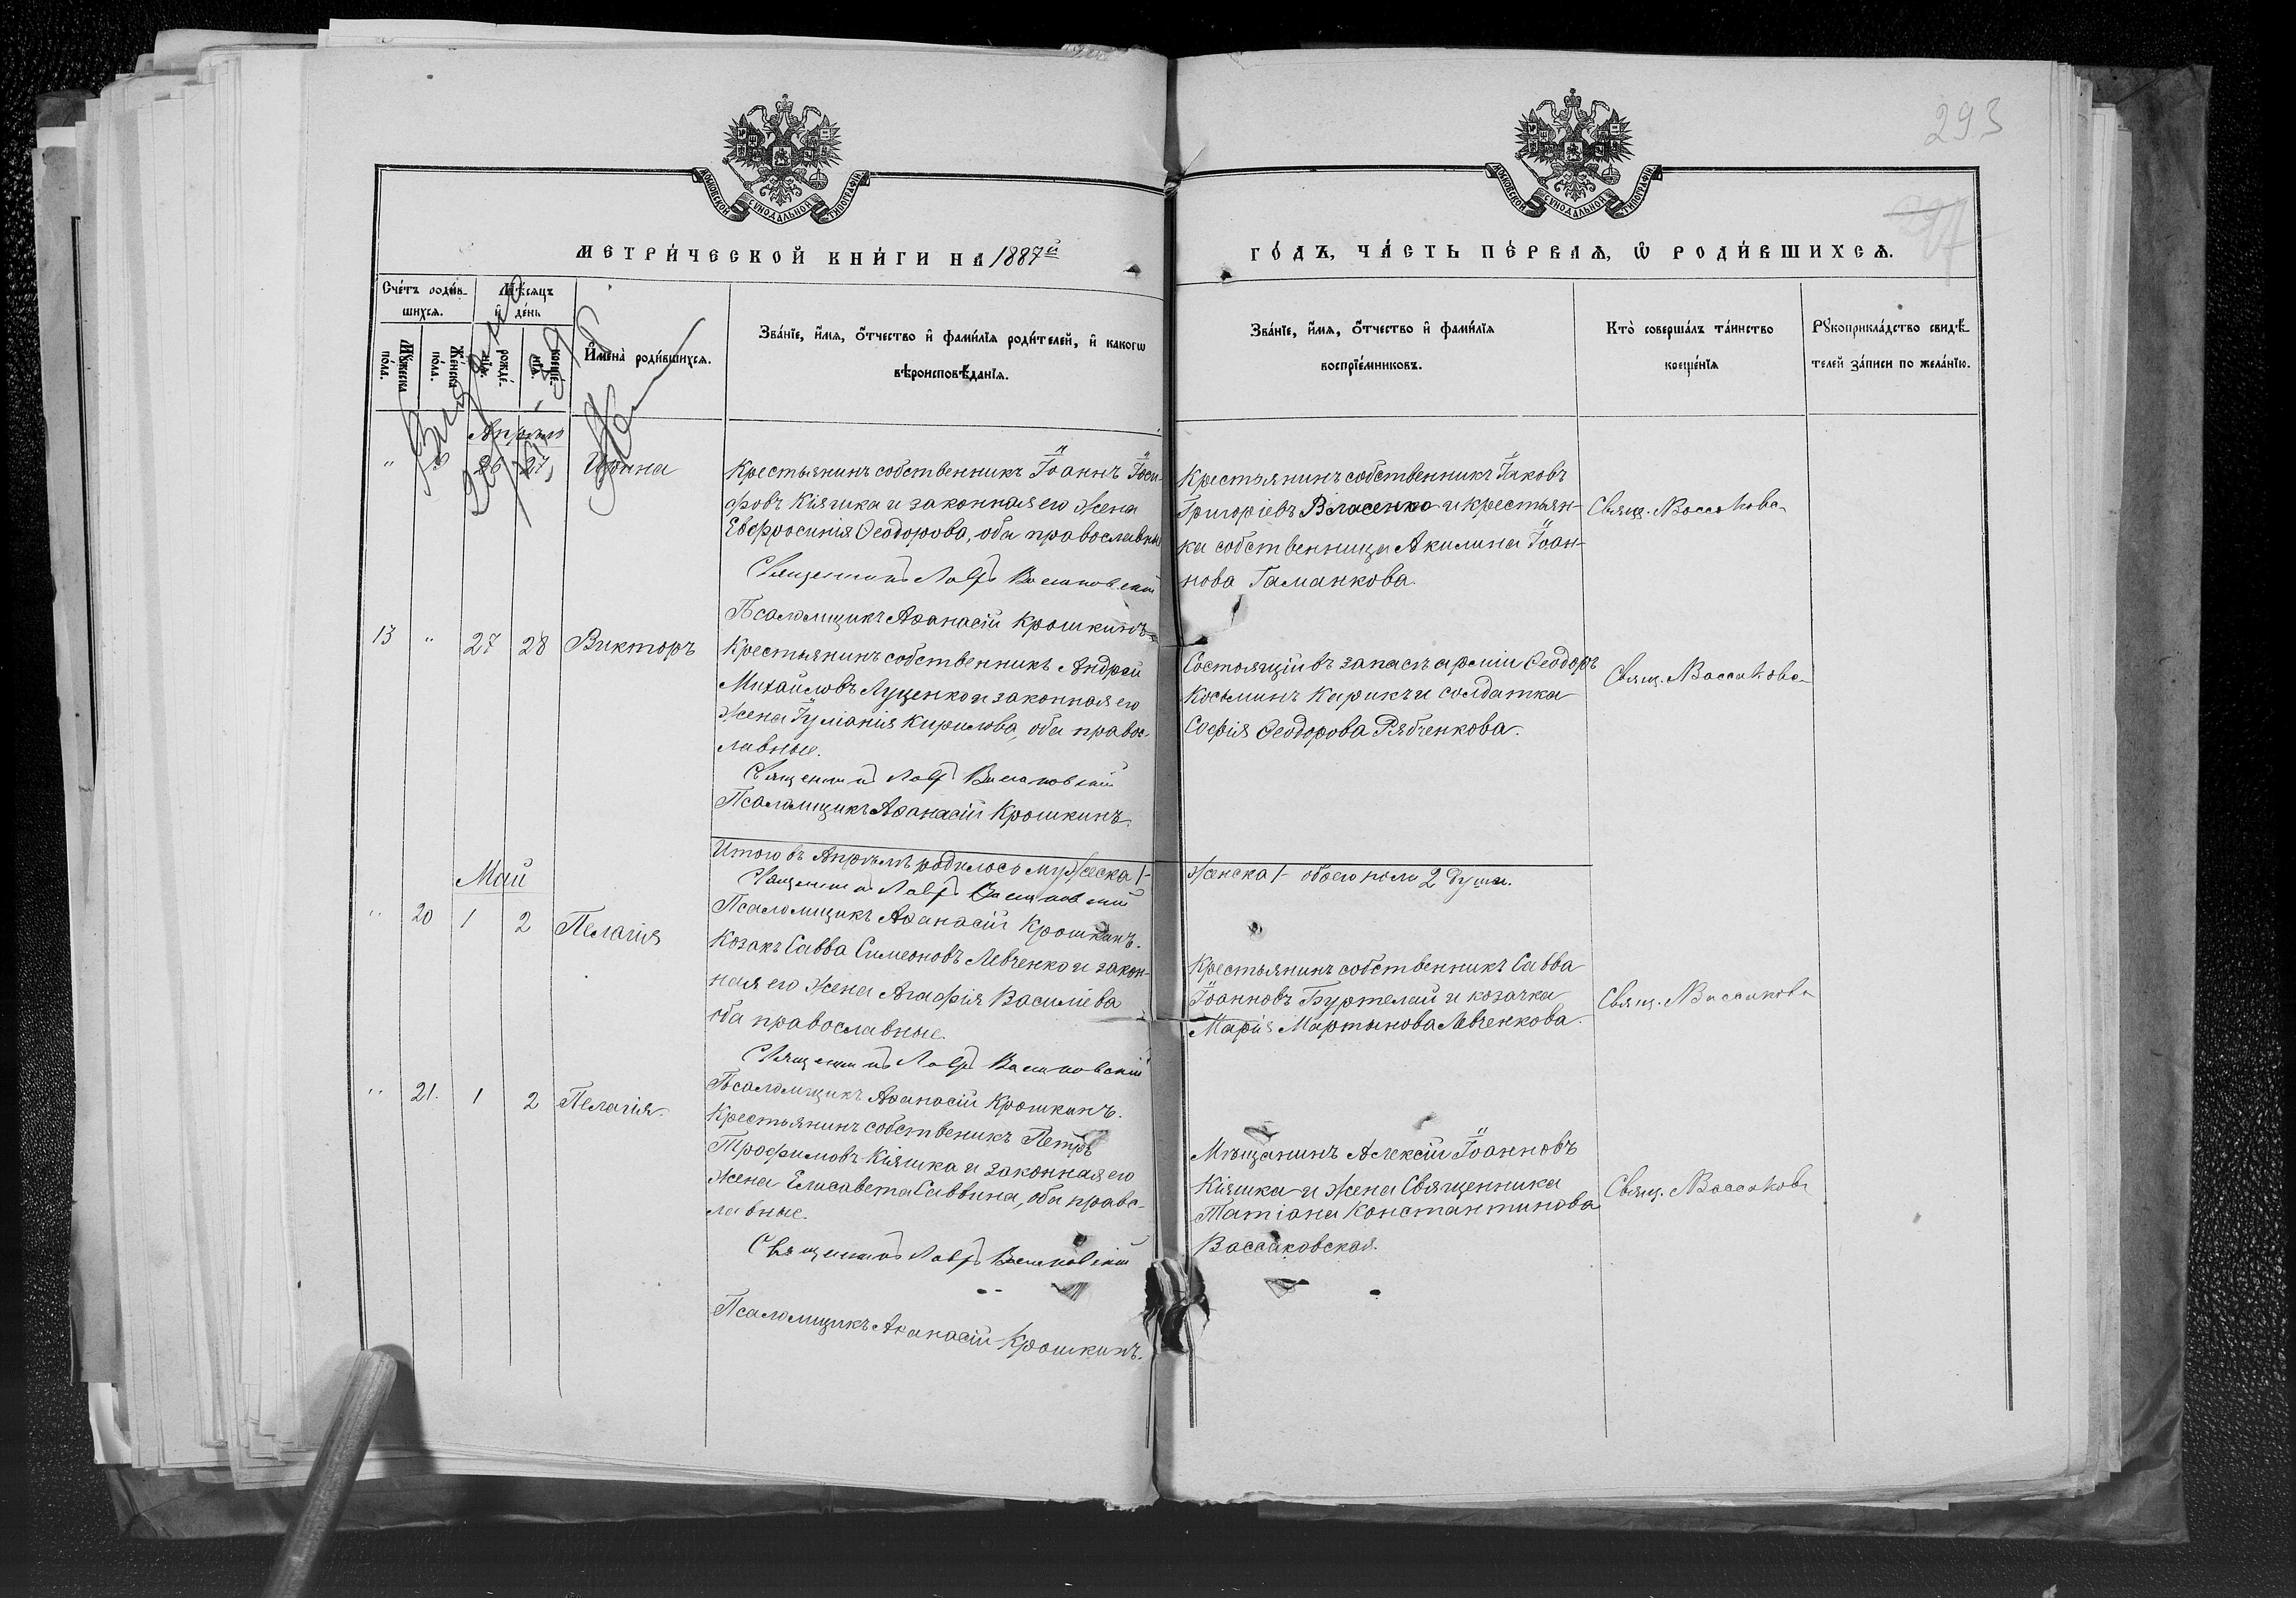 293
МОСКОВСКОЙ СѴНОДАЛЬНОЙ ТИПОГРАФІИ
МОСКОВСКОЙ СѴНОДАЛЬНОЙ ТИПОГРАФІИ
МЕТРИ́ЧЕСКОЙ КНИ́ГИ НА 1887й
ГО́ДЪ, ЧА́СТЬ ПЕ́РВАѦ, Ѡ РОДИ́ВШИХСѦ.
Сче́тъ роди́в-
шихсѧ.
Мѣ́сѧцъ
и҆ де́нь
Мꙋ́жеска по́ла.
Же́нска по́ла.
рожде́-нїѧ.
креще́-нїѧ.
И҆мена̀ роди́вшихсѧ.
Зва́нїе, и҆́мѧ, ѻ҆́тчество и҆ фами́лїѧ роди́телей, и҆ какогѡ
вѣроисповѣ́данїѧ.
Зва́нїе, и҆́мѧ, ѻ҆́тчество и҆ фами́лїѧ
воспрїе́мниковъ.
Кто̀ соверша́лъ та́инство
креще́нїѧ
Рꙋкоприкла́дство свидѣ́-
телей за́писи по жела́нїю.
Апрѣль
" 26 27 Ирина
Крестьянинъ собственникъ Іоаннъ Іоси-
фовъ Кіяшка и законная его жена
Евфросинія Ѳеодорова, оба православные
Священникъ Лавръ Вассаковскій
Псаломщикъ Аѳанасій Крошкинъ
Крестьянинъ собственникъ Іаковъ
Григоріевъ Власенко и крестьян-
ка собственница Акилина Іоан-
нова Гаманкова.
Свящ. Л Вассаковс
13 " 27 28 Викторъ
Крестьянинъ собственникъ Андрей
Михайловъ Луценко и законная его
жена Іуліанія Кирилова, оба правос-
лавные.
Священникъ Лавръ Вассаковскій
Псаломщикъ Аѳанасій Крошкинъ.
Состоящій въ запасѣ арміи Ѳеодоръ
Косьминъ Кирикъ и солдатка
Софія Ѳеодорова Рябченкова.
Свящ. Л Вассаковс
Итого въ Апрѣлѣ родилось мужеска 1-
женска 1- обоего пола 2 души.
Священникъ Лавръ Вассаковскій
Псаломщикъ Аѳанасій Крошкинъ.
Май
" 20 1 2 Пелагія
Козакъ Савва Симеоновъ Левченко и закон-
ная его жена Агафія Василіева
оба православные.
Священникъ Лавръ Вассаковскій
Псаломщикъ Аѳанасій Крошкинъ.
Крестьянинъ собственникъ Савва
Іоанновъ Буртелай и козачка
Марія Мартынова Левченкова.
Свящ. Л Вассаковс
" 21. 1 2 Пелагія.
Крестьянинъ собственикъ Петръ
Трофимовъ Кіяшка и законная его
жена Елисавета Саввина, оба право-
лавные.
Священникъ Лавръ Вассаковскій
Псаломщикъ Аѳанасій Крошкинъ.
Мѣщанинъ Алексій Іоанновъ
Кіяшка и жена Священника
Татіана Константинова
Вассаковская.
Свящ. Л Вассаковс